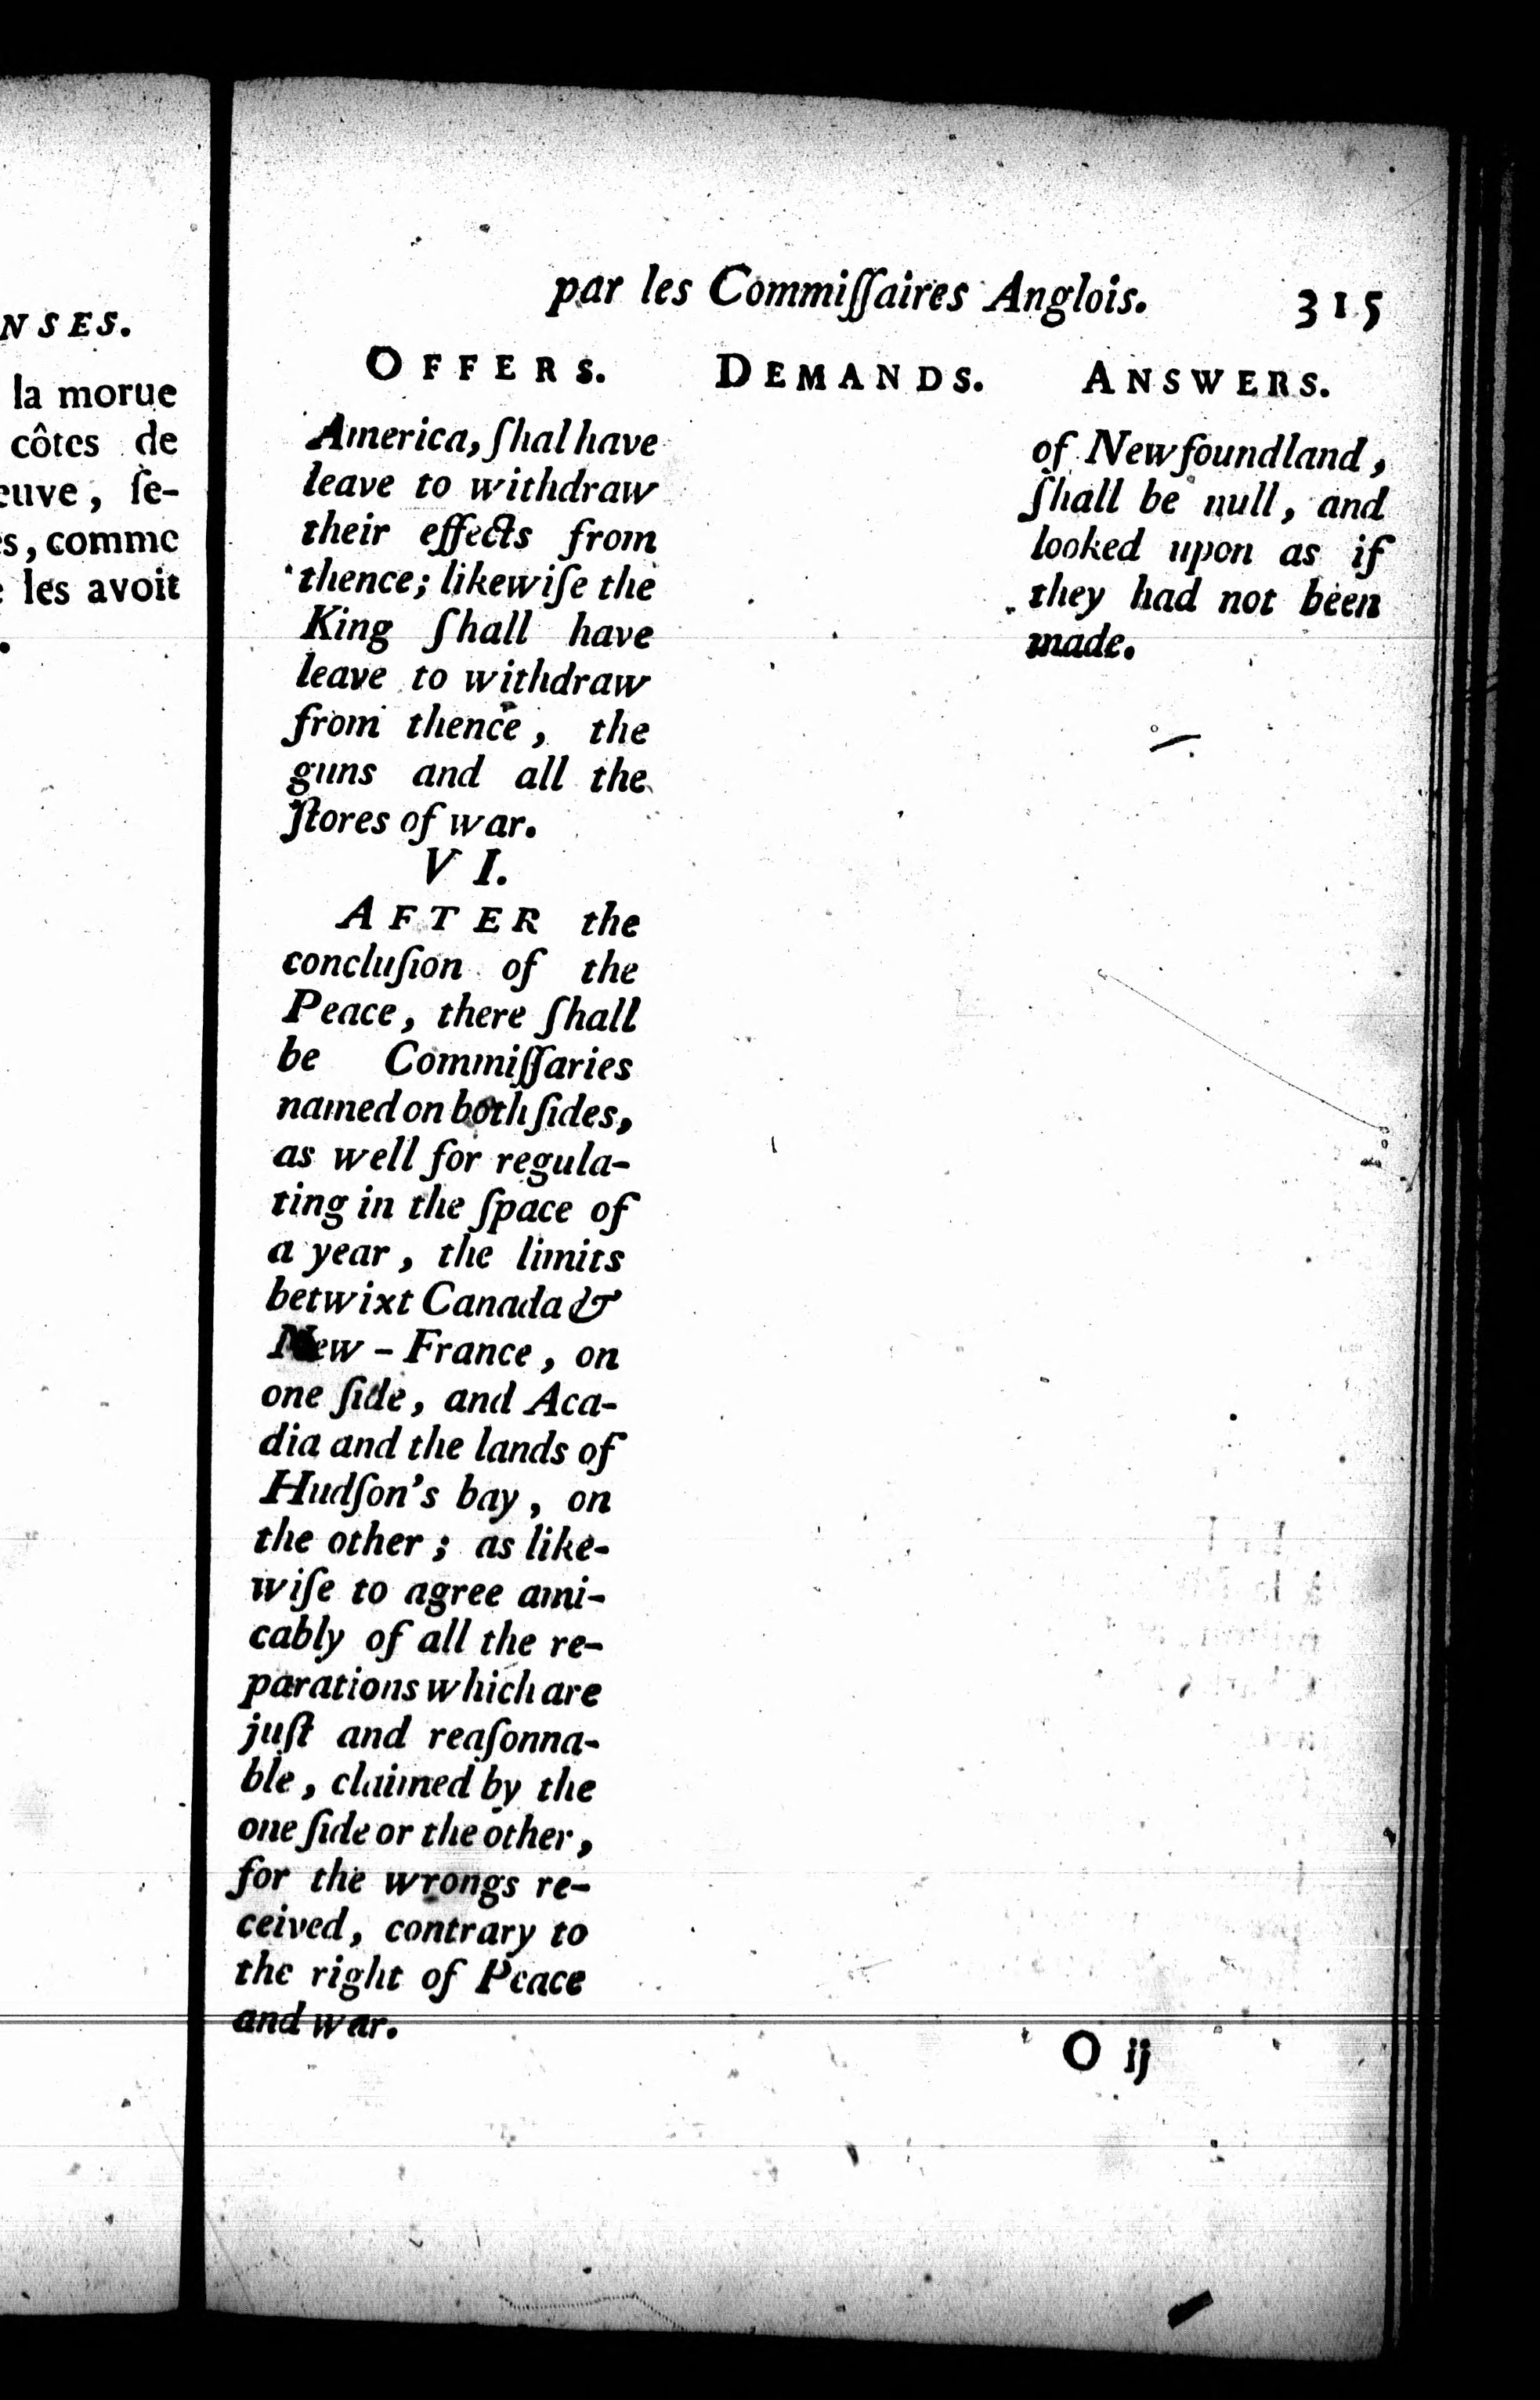 NSES.
la morue
côtes de
euve, ſe-
s, comme
les avoit
par les Commiſſaires Anglois. 315
OFFERS.
America, ſhal have
leave to withdraw
their effects from
thence; likewiſe the
King ſhall have
leave to withdraw
from thence, the
guns and all the
ſtores of war.
VI.
AFTER the
concluſion of the
Peace, there ſhall
be Commiſſaries
named on both ſides,
as well for regula-
ting in the ſpace of
a year, the limits
betwixt Canada &
New-France, on
one ſide, and Aca-
dia and the lands of
Hudſon's bay, on
the other; as like-
wiſe to agree ami-
cably of all the re-
parations which are
juſt and reaſonna-
ble, claimed by the
one ſide or the other,
for the wrongs re-
ceived, contrary to
the right of Peace
and war.
DEMANDS.
ANSWERS.
of Newfoundland,
ſhall be null, and
looked upon as if
they had not been
made.
O ij